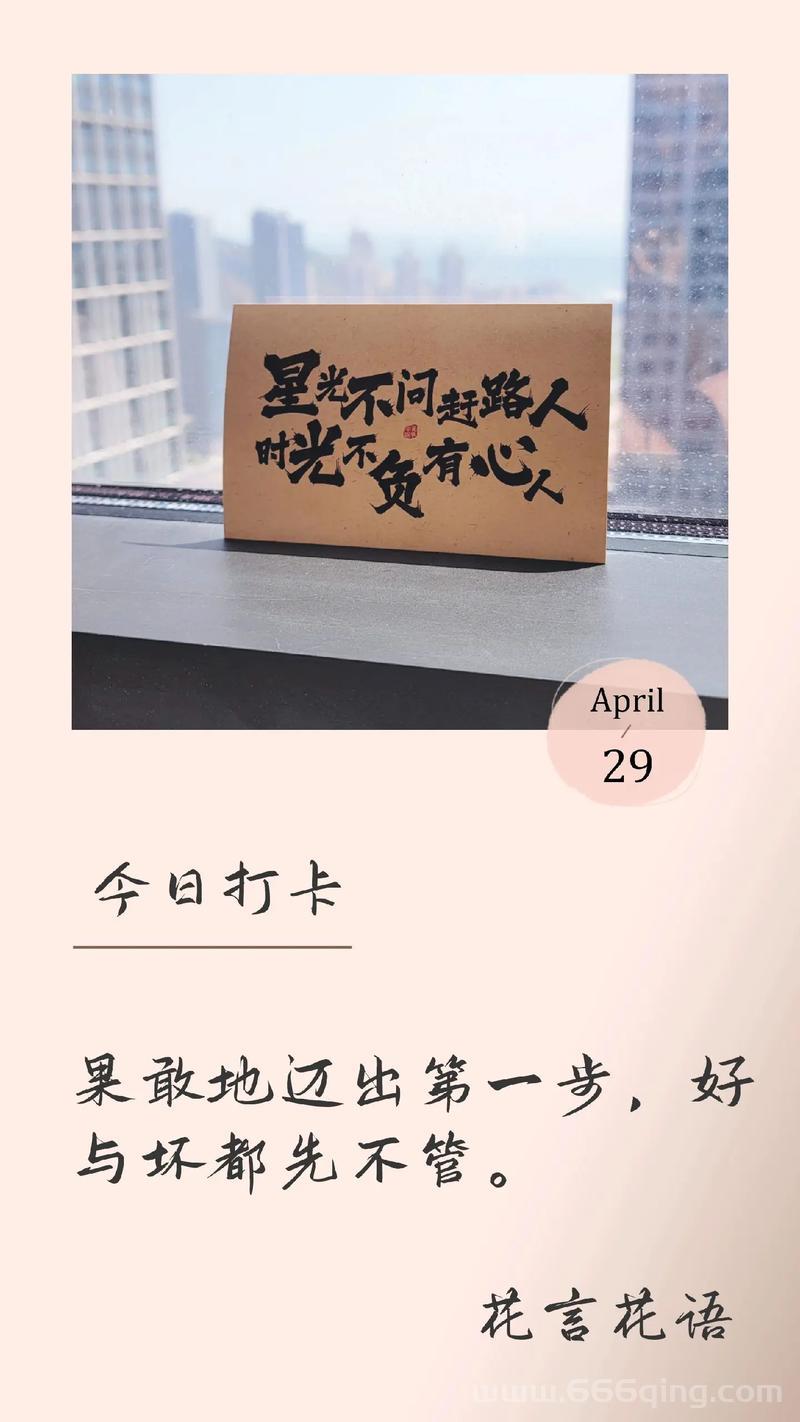 星光不问赶路人
时光不负有心人
April
/
29
今日打卡
果敢地迈出第一步，好
与坏都先不管。
花言花语
www.666qing.com